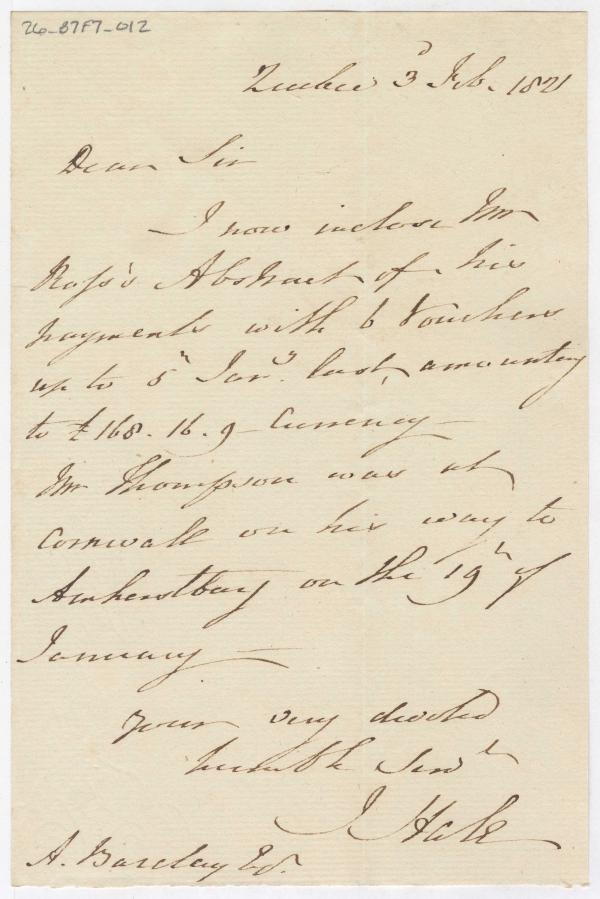 26-B7F7-012
Quebec 3d Feb. 1821
Dear Sir
I now inclose Mr
Ross's Abstract of his
payments with 6 Vouchers
up to 5th Jany. last, amounting
to £168. 16. 9 Currency—
Mr Thompson was at
Cornwall on his way to
Amherstburg on the 19th of
January—
your very devoted
humble Servt
J Hale
A. Barclay Esqr.